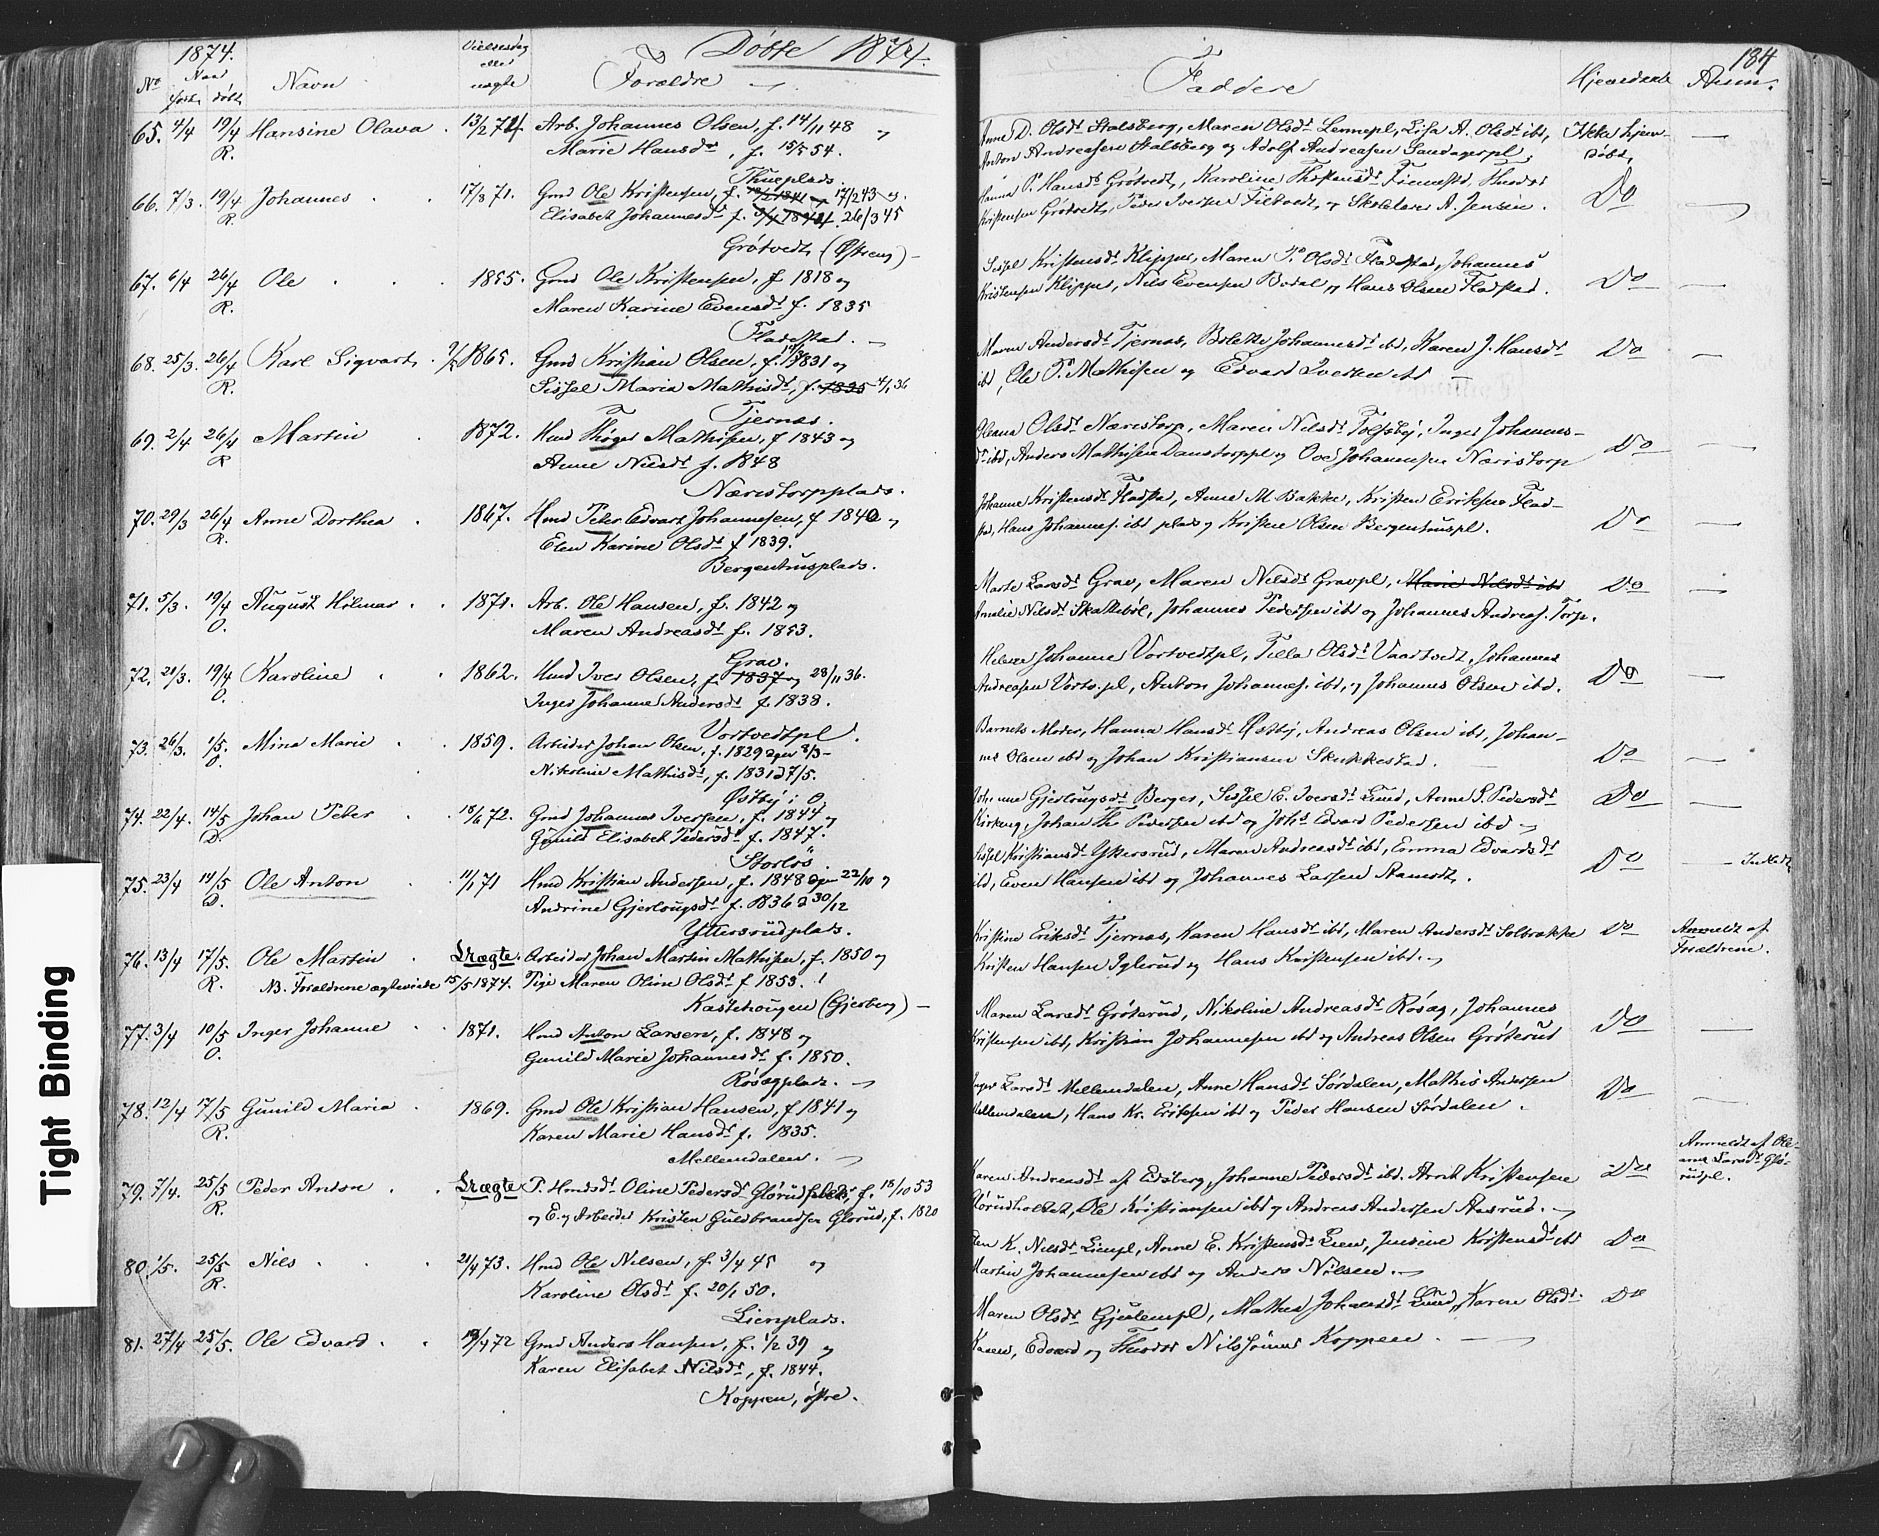 1874.
Døbte 1874.
184
No
Naar
født
døbt
Navn
Vielsesdag
eller
uægte
Forældre
Faddere
Hjemdøbt
Anm.
65. 4/4 19/4 R. Hansine Olava . 13/2 74. Arb. Johannes Olsen, f. 14/11 48 og
Marie Hansdr, f. 15/5 54.
Thueplads.
Anne D. Olsdr Stalsberg, Maren Olsdr Lennepl, Lisa A. Olsdr ibd,
Anton Andreasen Stalsberg og Adolf Andreasen Sandagerpl.
Ikke hjem-
døbt.
66. 7/3. 19/4 R. Johannes . . 17/8 71. Gmd Ole Kristensen, f. 17/2 43 og
Elisabet Johannesdr f. 26/3 45
Grøtvedt (Østreng)
Hanna P. Hansdr Grøtvedt, Karoline
Kristensen Grøtvedt, Peder Iversen og Skolelærer A. Jensen.
Do
67. 6/4 26/4 R. Ole . . . 1855. Gmd Ole Kristensen, f 1818 og
Maren Karine Evensdr f. 1835
Fladestad.
Sissel Kristensdr Klipper, Maren P. Olsdr Fladstad, Johannes
Kristensen Klipper, Nils Evensen Bodal og Hans Olsen Fladstad.
Do
68. 25/3. 26/4 R. Karl Sigvart . 1865. Gmd Kristian Olsen, f. 1831 og
Sissel Maria Mathisdr, f. 1835 4/1 36
Tjernæs.
Maren Andersdr Tjernæs, Bolette Johannesdr ibd, Karen J. Hansdr
ibd, Ole P. Mathisen og Edvard Iversen ibd
Do
69. 2/4 26/4 R Martin . 1872. Hmd Thoger Mathisen, f 1843 og
Anne Nilsdr f. 1848
Næristorpplads.
Oleana Olsdr Næristorp, Maren Nilsdr Tolfsby, Inger Johannes-
dr ibd, Anders Mathisen Danstorppl og Ole Johannesen Næristorp
Do
70. 29/3 26/4 R. Anne Dorthea . 1867. Hmd Peter Edvart Johannesen, f 1840 og
Elen Karine Olsdr f 1839.
Bergentrusplads.
Johanne Kristensdr Fladsta, Anne M. Bakke, Kristen Eriksen Flad-
sta, Hans Johannes. ibd plads og Kristen Olsen Bergentruspl.
Do
71. 5/3. 19/4 O. August Hilmar . . 1871. Arb. Ole Hansen, f. 1842 og
Maren Andreasdr f. 1853.
Grav.
Marte Larsdr Grav, Maren Nilsdr Gravpl, Marie Nilsdr ibd
Amalie Nilsdr Skattebøl, Johannes Pedersen ibd og Johannes Andreas. Torp.
Do
72. 21/3. 19/4 O. Karoline . . 1862. Hmd Iver Olsen, f. 1837 og 28/11 36.
Inger Johanne Andersdr f. 1838.
Vortvedtpl.
Helene Johanne Vortvedtpl, Tilla Olsdr Vaartvedt, Johannes
Andreasen Vortv.pl, Anton Johannes. ibd, og Johannes Olsen ibd.
Do
73. 26/3. 1/5. O. Mina Marie . . 1859. Arbeider Johan Olsen, f. 1829 8/3
Nikoline Mathisdr, f. 1831 27/5.
Østby i O.
Barnets Moder, Hanna Hansdr Østby, Andreas Olsen ibd, Johan-
nes Olsen ibd og Johan Kristiansen Skukkestad.
Do
74. 22/4. 14/5 D. Johan Peter . . 18/6 72. Gmd Johannes Iversen, f. 1844 og
Gunild Elisabet Pedersdr f. 1847.
Storløs.
Johanne Gjerlougsdr Berger, Sissel E. Iversdr Lund, Anne S. Pedersdr
Kirkeng, Johan Th. Pedersen ibd og Johs Edvard Pedersen ibd
Do
75. 23/4 14/5 D. Ole Anton . . 11/1 71 Hmd Kristian Andersen, f. 1848 22/10 og
Andrine Gjerlougsdr f. 1836 30/12
Yttersrudplads.
Sissel Kristiansdr Yttersrud, Maren Andreasdr ibd, Emma Edvardsdr
ibd, Even Hansen ibd og Johannes Larsen Aamodt.
Do
76. 13/4 17/5. R. Ole Martin . Uægte. Arbeider Johan Martin Mathisen, f. 1850 og
NB. Forældrene ægteviede 15/5 1874. Pige Maren Oline Olsdr f 1853. !
Kastehougen (Gjerberg)
Kristine Eriksdr Tjernæs, Karen Hansdr ibd, Maren Andersdr Solbrække
Kristen Hansen Iglerud og Hans Kristensen ibd.
Do
Anmeldt af
Forældrene.
77. 3/4 10/5 O. Inger Johanne . . 1871. Hmd Anton Larsen, f. 1848 og
Gunild Marie Johannesdr f. 1850.
Røsægplads.
Maren Larsdr Grøterud, Nikoline Andreasdr Røsæg, Johannes
Kristensen ibd, Kristian Johannesen ibd og Andreas Olsen Grøterud
Do
78. 12/4 17/5 R. Gunild Maria . 1869. Gmd Ole Kristian Hansen, f 1841 og
Karen Marie Hansdr f. 1835.
Mellemdalen.
Inger Larsdr Mellemdalen, Anne Hansdr Sørdalen, Mathis Andersen
Mellemdalen, Hans Kr. Eriksen ibd og Peder Hansen Sørdalen.
Do
79. 7/4. 25/5 R. Peder Anton . . Uægte P. Hmdsdr Oline Pedersdr Glørudholdt, f. 18/10 53
og E. og Arbeider Kristen Guldbrandsen Glørud, f. 1820
Karen Andreasdr af Edsberg, Johanne Pedersdr ibd. Arnt Kristensen
Glørudholdet, Ole Kristiansen ibd og Andreas Andersen Aasrud.
Do
Anmeldt af Ole-
ane Larsdr Glø-
rudpl.
80. 1/5. 25/5 R. Nils . . . 21/4 73. Hmd Ole Nilsen, f. 3/4 45 og
Karoline Olsdr f. 20/1 50.
Lienplads.
K. Nilsdr Lienpl, Anne E. Kristensdr Lien, Jensine Kristensdr ibd
Martin Johannesen ibd og Anders Nilsen.
Do
81. 27/4 25/5. Ole Edvard . . 19/4 72 Gmd Anders Hansen, f. 1/2 39 og
Karen Elisabet Nilsdr, f. 1844.
Koppen, østre.
Maren Olsdr Gjeslemspl, Mathea Johansdr Lund, Karen Olsdr
Edvard og Theodor Nilssønner Koppen.
Do
Tight Binding